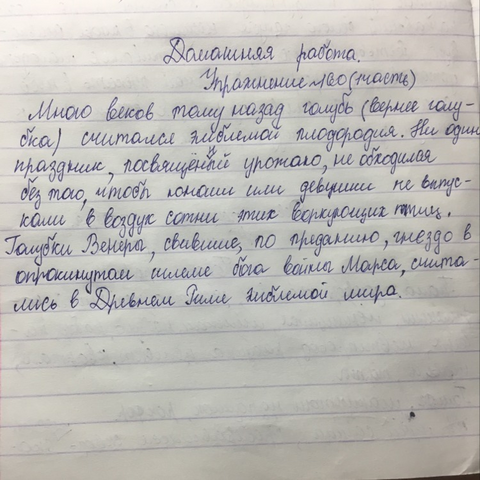 Домашняя работа.
Упражнение №160 (1 часть)
Много веков тому назад голубь (вернее голу-
бка) считался эмблемой плодородия. Ни один
праздник, посвящённый урожаю, не обходился
без того, чтобы юноши или девушки не выпус-
кали в воздух сотни этих воркующих птиц.
Голубки Венеры, свившие, по преданию, гнездо в
опрокинутом шлеме бога войны Марса, счита-
лись в Древнем Риме эмблемой мира.